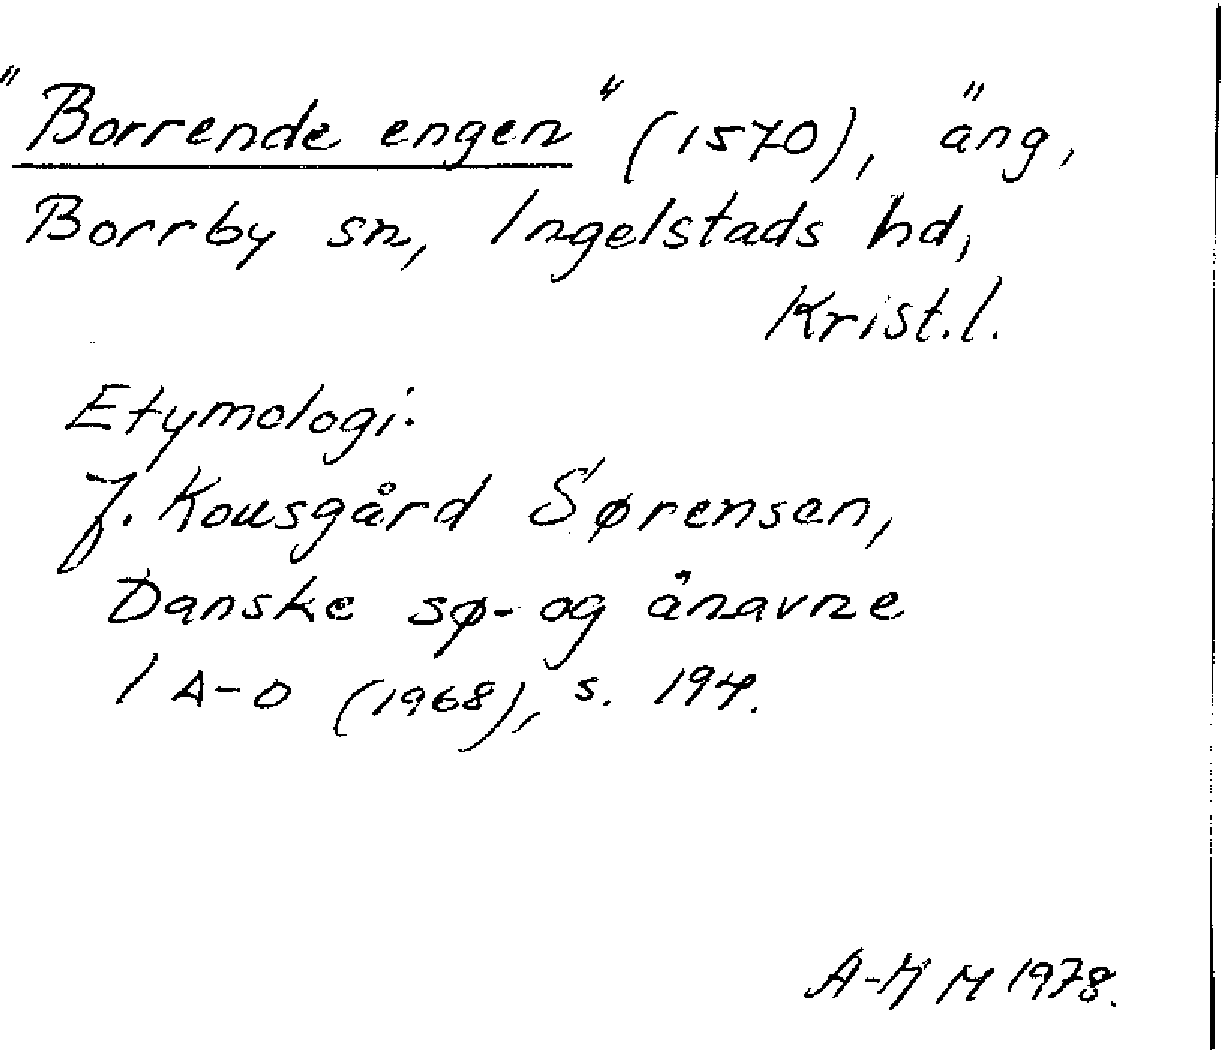 "Borrende engen" (1570), äng,
Borrby sn, Ingelstads hd,
Krist.l.
Etymologi:
J. Kousgård Sørensen,
Danske sø- og ånavne
I A-O (1968), s. 194.
A-M M 1978.